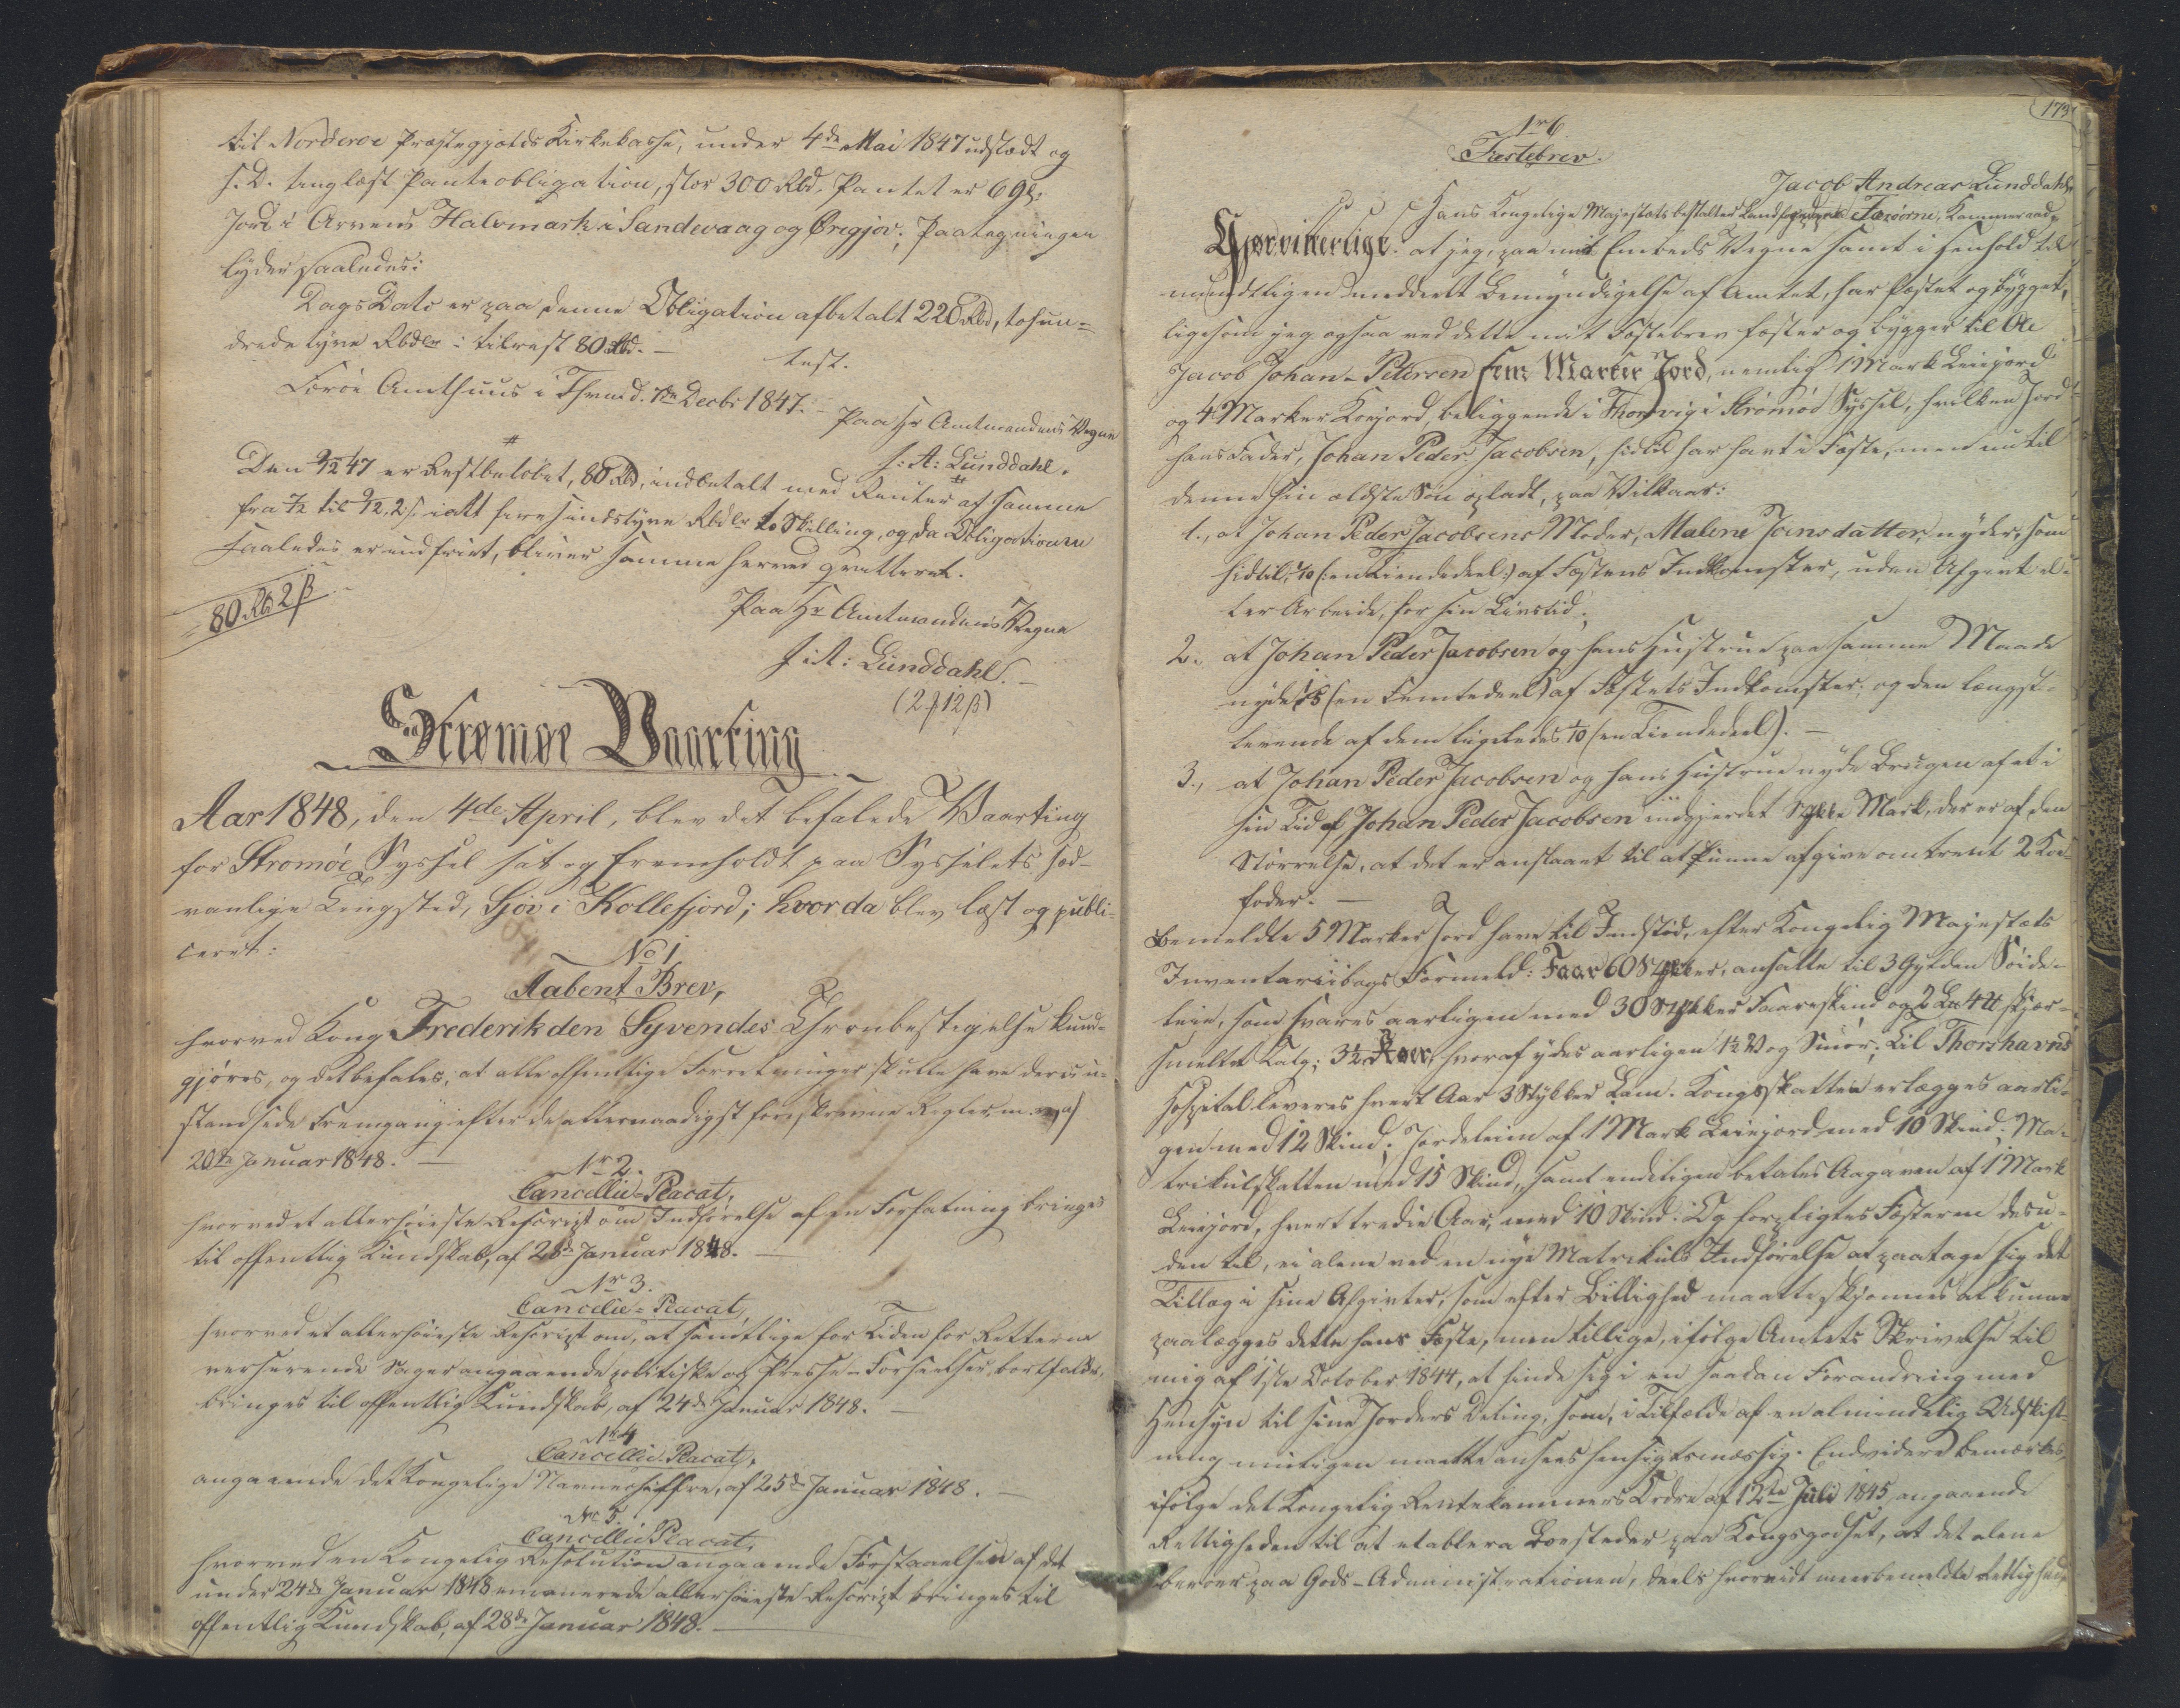 til Norderøe Præstegjælds Kirkekasse, under 4de Mai 1847 udstædt og
s. D. tinglæst Panteobligation, stor 300 Rbd. Pantet er 6 gl.
Jord i Arvens Halvmark i Sandevaag og Øregjov; Paategningen
lyder saaledes:
Dags Dato er paa denne Obligation afbetalt 220 Rbd, tohun-
drede tyve Rbdlr : tilrest 80 Rbd. —
test.
Færøe Amthuus i Thvnd. 7de Decbr 1847. —
Paa Hr Amtmandens Vegne
J: A: Lunddahl.
Den 9/12 47 er Restbeløbet, 80 Rbd, indbetalt med Renter af samme
fra 7/12 til 9/12, 2 s. : ialt firesindstyve Rbdlr to Skilling, og da Obligationen
saaledes er indfriet, bliver samme herved qvitteret.
80 Rbd 2 β
Paa Hr Amtmandens Vegne
J: A: Lunddahl. —
(2 f 12 β)
Strømøe Vaarting
Aar 1848, den 4de April, blev det befalede Vaarting
for Strømøe Syssel sat og fremholdt paa Sysselets sæd-
vanlige Tingsted, Sjov i Kollefjord; hvor da blev læst og publi-
ceret:
No 1
Aabent Brev,
hvorved Kong Frederik den Syvendes Thronbestigelse kund-
gjøres, og det befales, at alle offentlige Forretninger skulle have deres u-
standsede Fremgang efter de allernaadigst foreskrevne Regler m. m. af
20de Januar 1848. —
Nr 2.
Cancellie-Placat,
hvorved et allerhøieste Rescript om Indførelse af en Forfatning bringes
til offentlig Kundskab, af 28de Januar 1848. —
Nr 3.
Cancellie-Placat,
hvorved et allerhøieste Rescript om, at samtlige for Tiden for Retterne
verserende Sager angaaende politiske og Presse-Forseelser bortfalde,
bringes til offentlig Kundskab, af 24de Januar 1848. —
Nr 4
Cancellie-Placat,
angaaende det Kongelige Navneciffre, af 25de Januar 1848. —
Nr 5.
Cancellie Placat,
hvorved en Kongelig Resolution angaaende Forstaaelsen af det
under 24de Januar 1848 emanerede allerhøieste Rescript bringes til
offentlig Kundskab, af 28de Januar 1848. —
173
Nr 6
Fæstebrev.
Jacob Andreas Lunddahl,
Hans Kongelige Majestæts bestalter Landfoged paa Færøerne, Kammerraad,
Gjør vitterligt: at jeg, paa mit Embeds Vegne samt i Henhold til
mundtligen meddeelt Bemyndigelse af Amtet, har fæstet og bygget,
ligesom jeg ogsaa ved dette mit Fæstebrev fæster og bygger til Ole
Jacob Johan-Petersen fem Marker Jord, nemlig 1 Mark Leiejord
og 4 Marker Kongsjord, beliggende i Thorsvig i Strømøe Syssel, hvilken Jord
hans Fader, Johan Peder Jacobsen, hidtil har havt i Fæste, men nu til
denne sin ældste Søn opladt, paa Vilkaar:
1., at Johan Peder Jacobsens Moder, Malene Joensdatter, nyder, som
hidtil, 1/10 (: en Tiendedeel :) af Fæstens Indkomster, uden Afgivt el-
ler Arbeide, for sin Livstid;
2., at Johan Peder Jacobsen og hans Hustrue paa samme Maade
nyde 1/5 (en Femtedeel) af Fæstets Indkomster; og den længst-
levende af dem ligeledes 1/10 (en Tiendedeel). —
3., at Johan Peder Jacobsen og hans Hustrue nyde Brugen af et i
sin Tid af Johan Peder Jacobsen indgjerdet Stykke Mark, der er af den
Størrelse, at det er anslaaet til at kunne afgive omtrent 2 Koe-
foder. —
Bemeldte 5 Marker Jord have til Indstød, efter Kongelig Majestæts
Inventariibogs Formeld: Faar 60 Stykker, ansatte til 3 Gylden Søide-
leie, som svares aarligen med 30 Stykker Faareskind og 2 L℔ 4 ℔ skjær-
smeltet Talg; 3½ Koer, hvoraf ydes aarligen 1½ Vog Smør; til Thorshavns
Hospital leveres hvert Aar 3 Stykker Lam. Kongsskatten erlægges aarli-
gen med 12 Skind; Jordeleien af 1 Mark Leiejord med 10 Skind; Ma-
trikulskatten med 15 Skind, samt endeligen betales Aagaven af 1 Mark
Leiejord, hvert tredie Aar, med 10 Skind. Og forpligtes Fæsteren desu-
den til, ei alene ved en nye Matrikuls Indførelse at paatage sig det
Tillæg i sine Afgivter, som efter Billighed maatte skjønnes at kunne
paalægges dette hans Fæste, men tillige, ifølge Amtets Skrivelse til
mig af 1ste October 1844, at finde sig i en saadan Forandring med
Hensyn til sine Jorders Deling, som, i Tilfælde af en almindelig Udskift-
ning muligen maatte ansees hensigtsmæssig. Endvidere bemærkes,
ifølge det Kongelig Rentekammers Ordre af 12te Juli 1845, angaaende
Rettigheden til at etablere Bosteder paa Kongsgodset, at det alene
beroer paa Gods-Administrationen, deels hvorvidt meerbemeldte Rettighed,